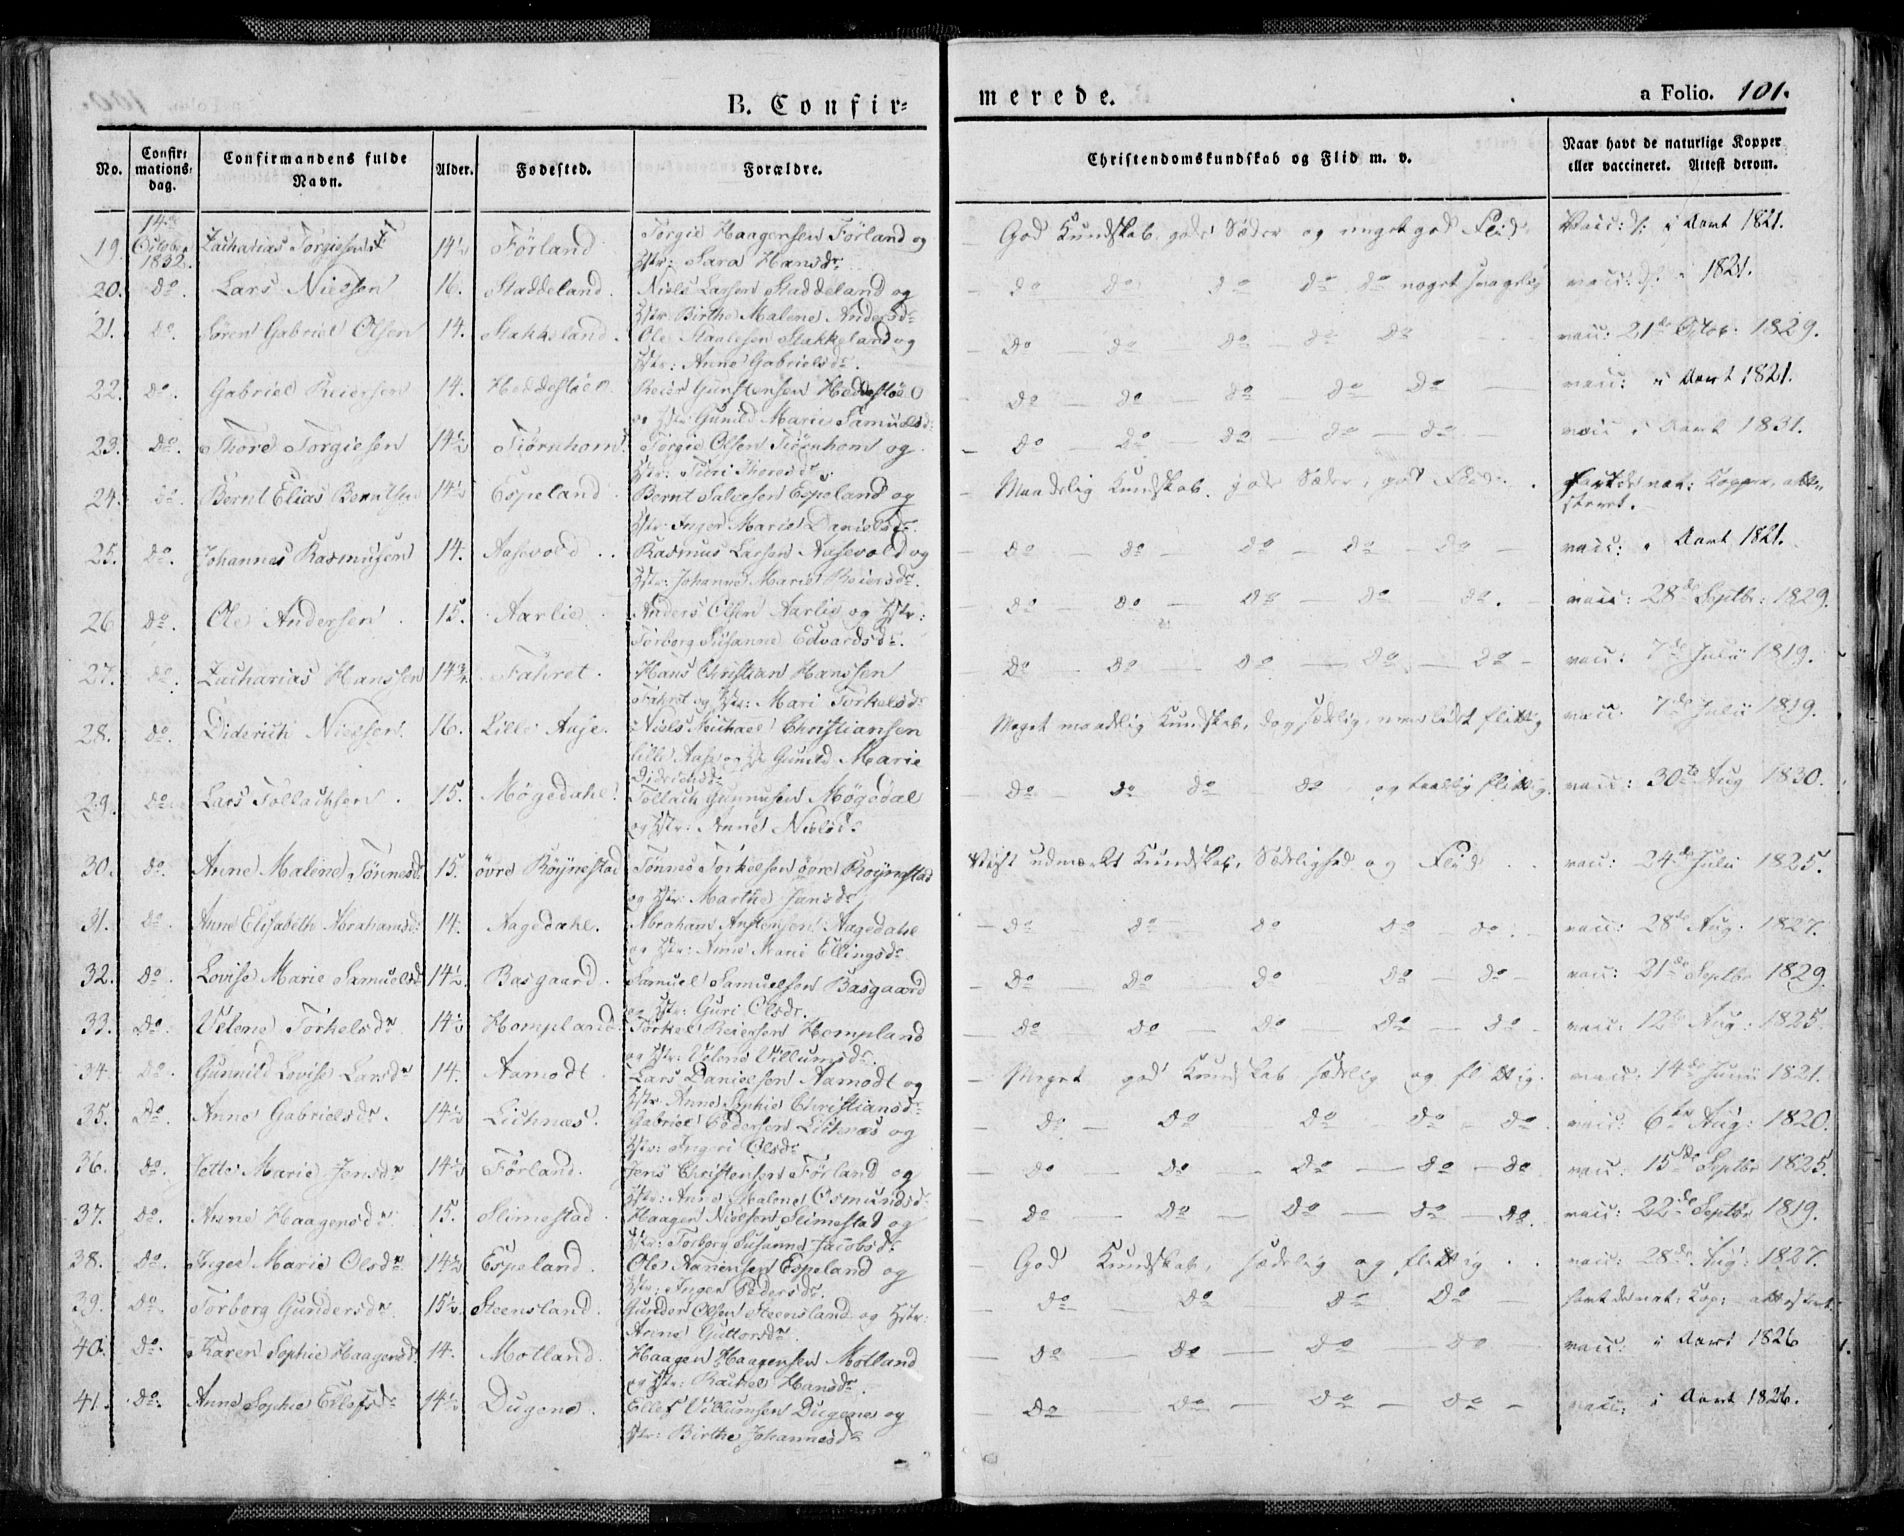 B. Confir-
merede.
a Folio. 101.
No.
Confir-
mations-
dag.
Confirmandens fulde
Navn.
Alder.
Fødested.
Forældre.
Christendomskundskab og Flid m. v.
Naar havt de naturlige Kopper
eller vaccineret. Attest derom.
19. 14de October 1832. Zacharias Torgiesen 14½ Förland Torgie Haagensen Förland og God Kundskab, gode Sæder og meget god Flid vacc: i Aaret 1821.
Hstr: Sara Hansdr.
20. Do. Lars Nielsen 16. Staddeland. Niels Larsen Staddeland og Do Do Do Do Do noget vacc: 1821.
Hstr: Birthe Malene Andersdr
21. Do. Sören Gabriel Olsen 14. Stakkeland. Ole Staalesen Stakkeland og Do Do Do Do Do vacc: 21de Octob: 1829.
Hstr: Anne Gabrielsdr.
22. Do. Gabriel Reiersen 14. Heddestöl Reier Gunstensen Heddestöl Do Do Do Do Do vacc: i Aaret 1821.
og Hstr Gunild Marie Samuelsd:
23. Do. Thore Torgiesen 14½ Tiörnhom Torgie Olsen Tiörnhom og Do Do Do Do Do vacc i Aaret 1831.
Hstr: Siri Thoresdr.
24. Do Bernt Elias Berntsen 14½ Espeland. Bernt Salvesen Espeland og Maadelig Kundskab, gode Sæder, god Flid. havt de nat: Kopper, atte-
Hstr: Inger Marie Danielsdr. steret.
25. Do. Johannes Rasmusen 14. Aasevold. Rasmus Larsen Aasevold og Do Do Do Do Do vacc: i Aaret 1821.
Hstr: Johanne Marie Reiersdr.
26 Do. Ole Andersen. 15. Aarlie. Anders Olsen Aarlie og Hstr: Do Do Do Do Do. vacc: 28de Septbr: 1829.
Torborg Susanne Edvardsdr.
27. Do. Zacharias Hanssen 14¾ Fahret. Hans Christian Hanssen Do Do Do Do Do vacc: 7de Julii 1819.
Fahret og Hstr: Mari Torkelsdr
28. Do. Diderich Nielsen. 16. Lille Aase. Niels Michael Christiansen Meget maadelig Kundskab, dog sædelig, men lidet flittig vacc: 7de Julii 1819.
Lille Aase og Hstr Gunild Marie
Didrichsdr
29. Do Lars Tollachsen. 15. Mögedahl. Tollach Gunnusen Mögedal Do Do Do Do og taalelig flittig. vacc: 30te Aug 1830.
og Hstr: Anne Nielsdr
30. Do. Anne Malene Tönnesdr 15. övre Röynestad Tönnes Torkelsen övre Röynestad udmærket Kundskab, Sædelighed og Flid vacc: 24de Julii 1825.
og Hstr: Marthe Jansdr
31. Do. Anne Elisabeth Abrahamsd: 14. Aagedahl. Abraham Anstensen Aagedahl Do Do Do Do Do vacc: 28de Aug: 1827.
og Hstr: Anne Marie Ellingsdr
32. Do. Lovise Marie Samuelsd 14½. Basgaard. Samuel Samuelsen Basgaard Do Do Do Do Do vacc: 21de Septbr 1829.
og Hstr: Guri Olsdr.
33. Do. Velene Torkelsdr 14½ Hompland. Torkel Reiersen Hompland Do Do Do Do Do vacc: 12te Aug: 1825.
og Hstr: Velene Villumsdr.
34. Do. Gunnild Lovise Larsdr 14. Aamodt. Lars Danielsen Aamodt og Meget god Kundskab sædelig og flittig. vacc: 14de Junii 1821.
Hstr Anne Sophie Christiansdr
35. Do. Anne Gabrielsdr. 14½ Lichnæs. Gabriel Pedersen Lichnæs og Do. Do Do Do Do. vacc: 6te Aug: 1820.
Hstr: Ingeri Olsdr
36. Do. Jette Marie Jensdr 14½ Förland. Jens Christensen Förland og Do Do Do Do Do vacc: 15de Septbr 1825.
Hstr: Anne Malene Osmundsd:
37. Do. Anne Haagensdr. 15. Slimestad. Haagen Nielsen Slimestad og Do Do Do Do Do. vacc: 22de Septbr 1819.
Hstr: Torborg Susanne Jacobsdr
38. Do. Inger Marie Olsdr 14½ Espeland. Ole Espeland og God Kundskab, sædelig og flittig. vacc: 28de Aug: 1827.
Hstr: Inger Pedersdr.
39. Do Torborg Gundersdr. 15½. Steensland. Gunder Olsen Steensland og Hstr: Do Do Do Do havt de nat: Kop: attesteret.
Anne Guttorsdr.
40. Do. Karen Sophie Haagensdr 14. Motland. Haagen Haagensen Motland Do Do Do Do vacc: i Aaret 1826
og Hstr: Rachel Hansdr.
41. Do. Anne Sophie Ellefsdr 14½ Dugene. Ellef Villumsen Dugene og Do Do Do Do vacc: i Aaret 1826.
Hstr: Birthe Johannesdr